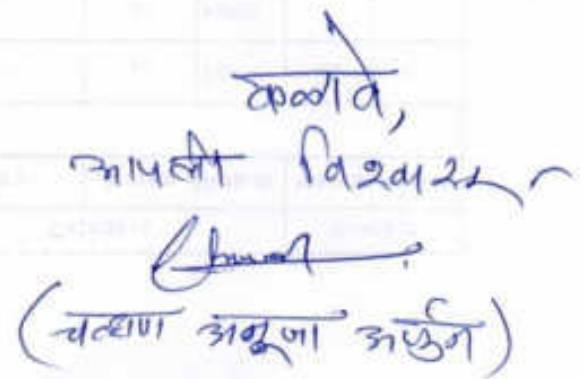 कळावे,
आपली विश्वासू
(चव्हाण अनुजा अर्जुन)